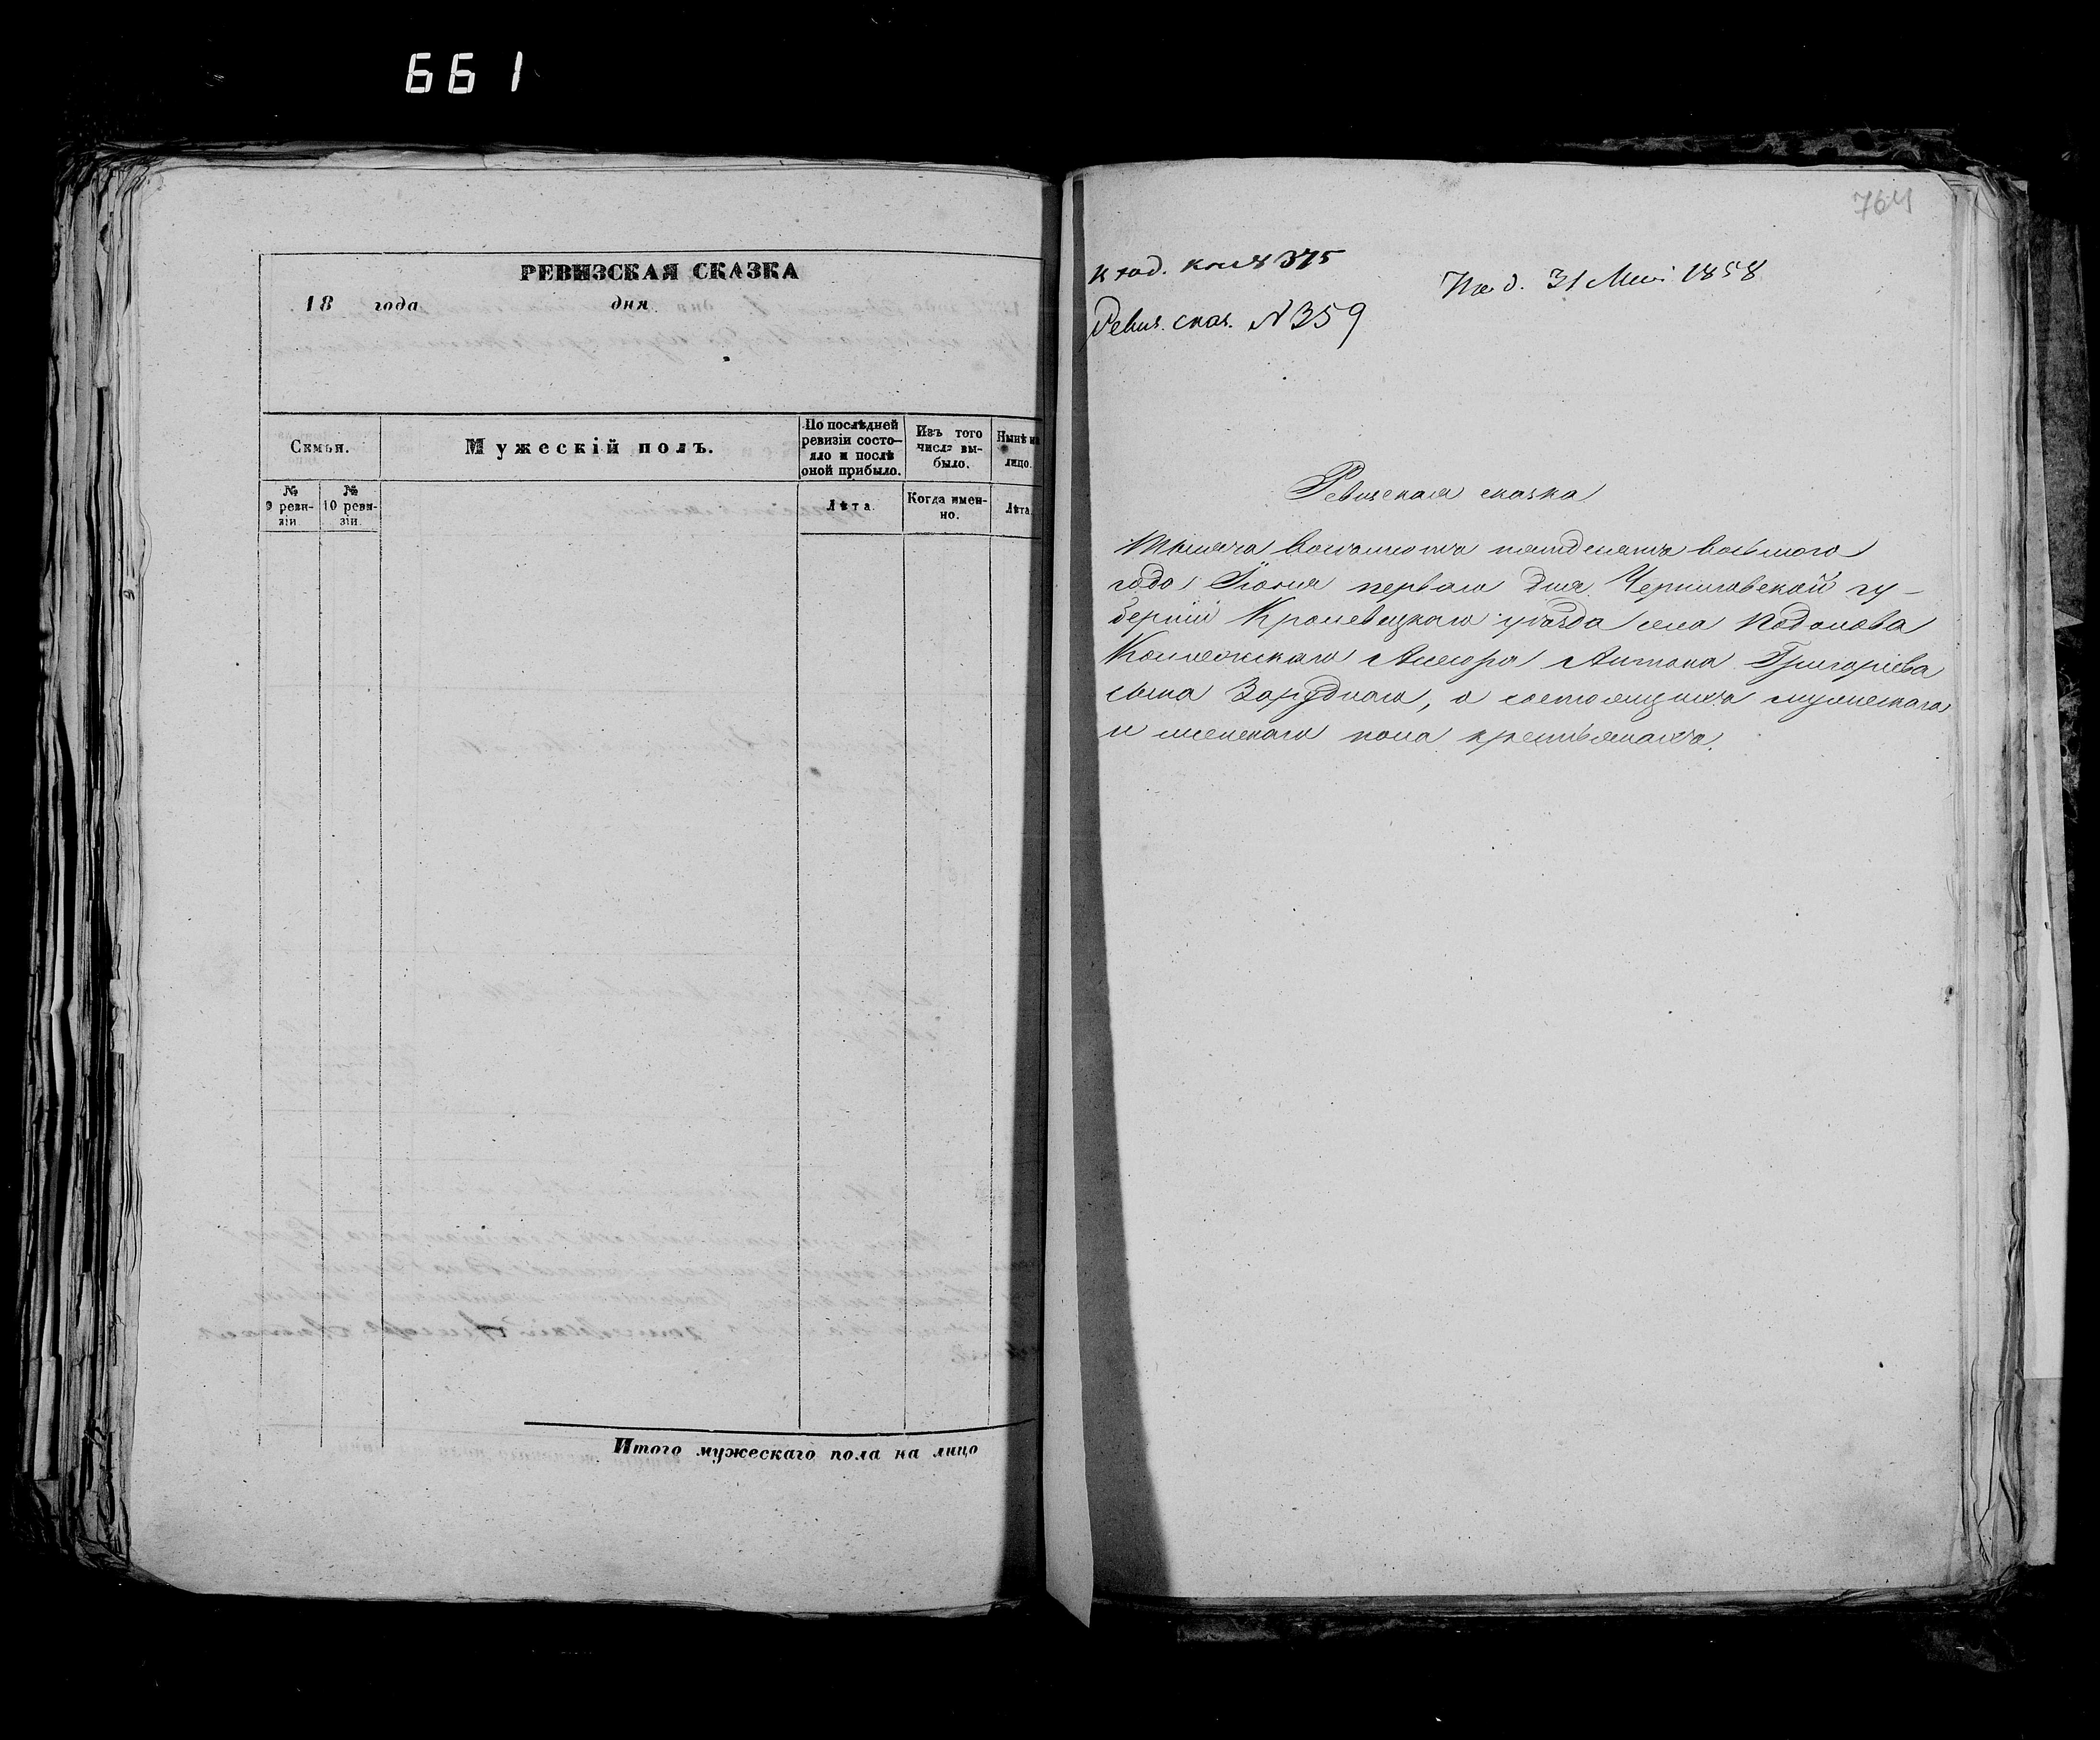 661
РЕВИЗСКАЯ СКАЗКА
18 года дня
Семьи.
Мужескій полъ.
По послѣдней ревизіи состояло и послѣ оной прибыло.
Изъ того числа выбыло.
Нынѣ на лицо.
№ 9 ревизіи
№ 10 ревизіи.
Лѣта.
Когда именно.
Лѣта.
Итого мужескаго пола на лицо
764
375
Ревиз. сказ. № 359
Под. 31 Мая 1858
Ревизская сказка
Тысяча восемьсотъ пятдесятъ восьмого
года Іюня перваго дня Черниговской гу-
берніи Кролевецкаго уѣзда села Подолова
Коллежскаго Ассесора Антона Григоріева
сына Заруднаго, о состоящихъ мужескаго
и женскаго пола крестьянахъ.